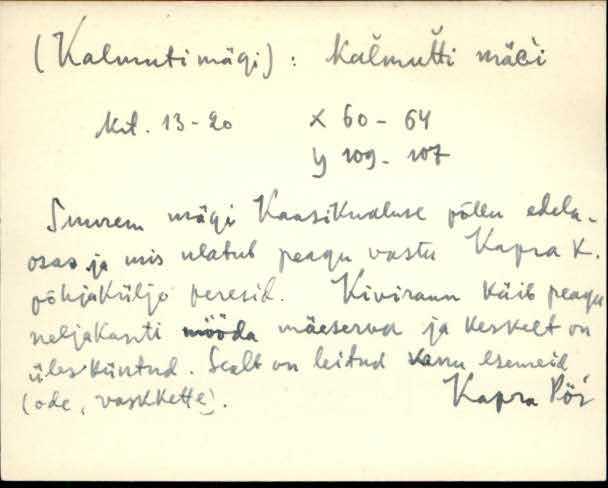 (Kalmutimägi): kal̆mut̆ti mäg̀i
Kit. 13-20 x 60 - 64
y 109 - 107
Suurem mägi Kaasikualuse põllu edela-
osas ja mis ulatub peagu vastu Kapra k.
põhjakülje peresid. Kiviraun käib peagu
neljakanti mööda mäeserva ja keskelt on
üles küntud. Sealt on leitud vanu esemeid
(ode, vaskkette). Kapra Põs